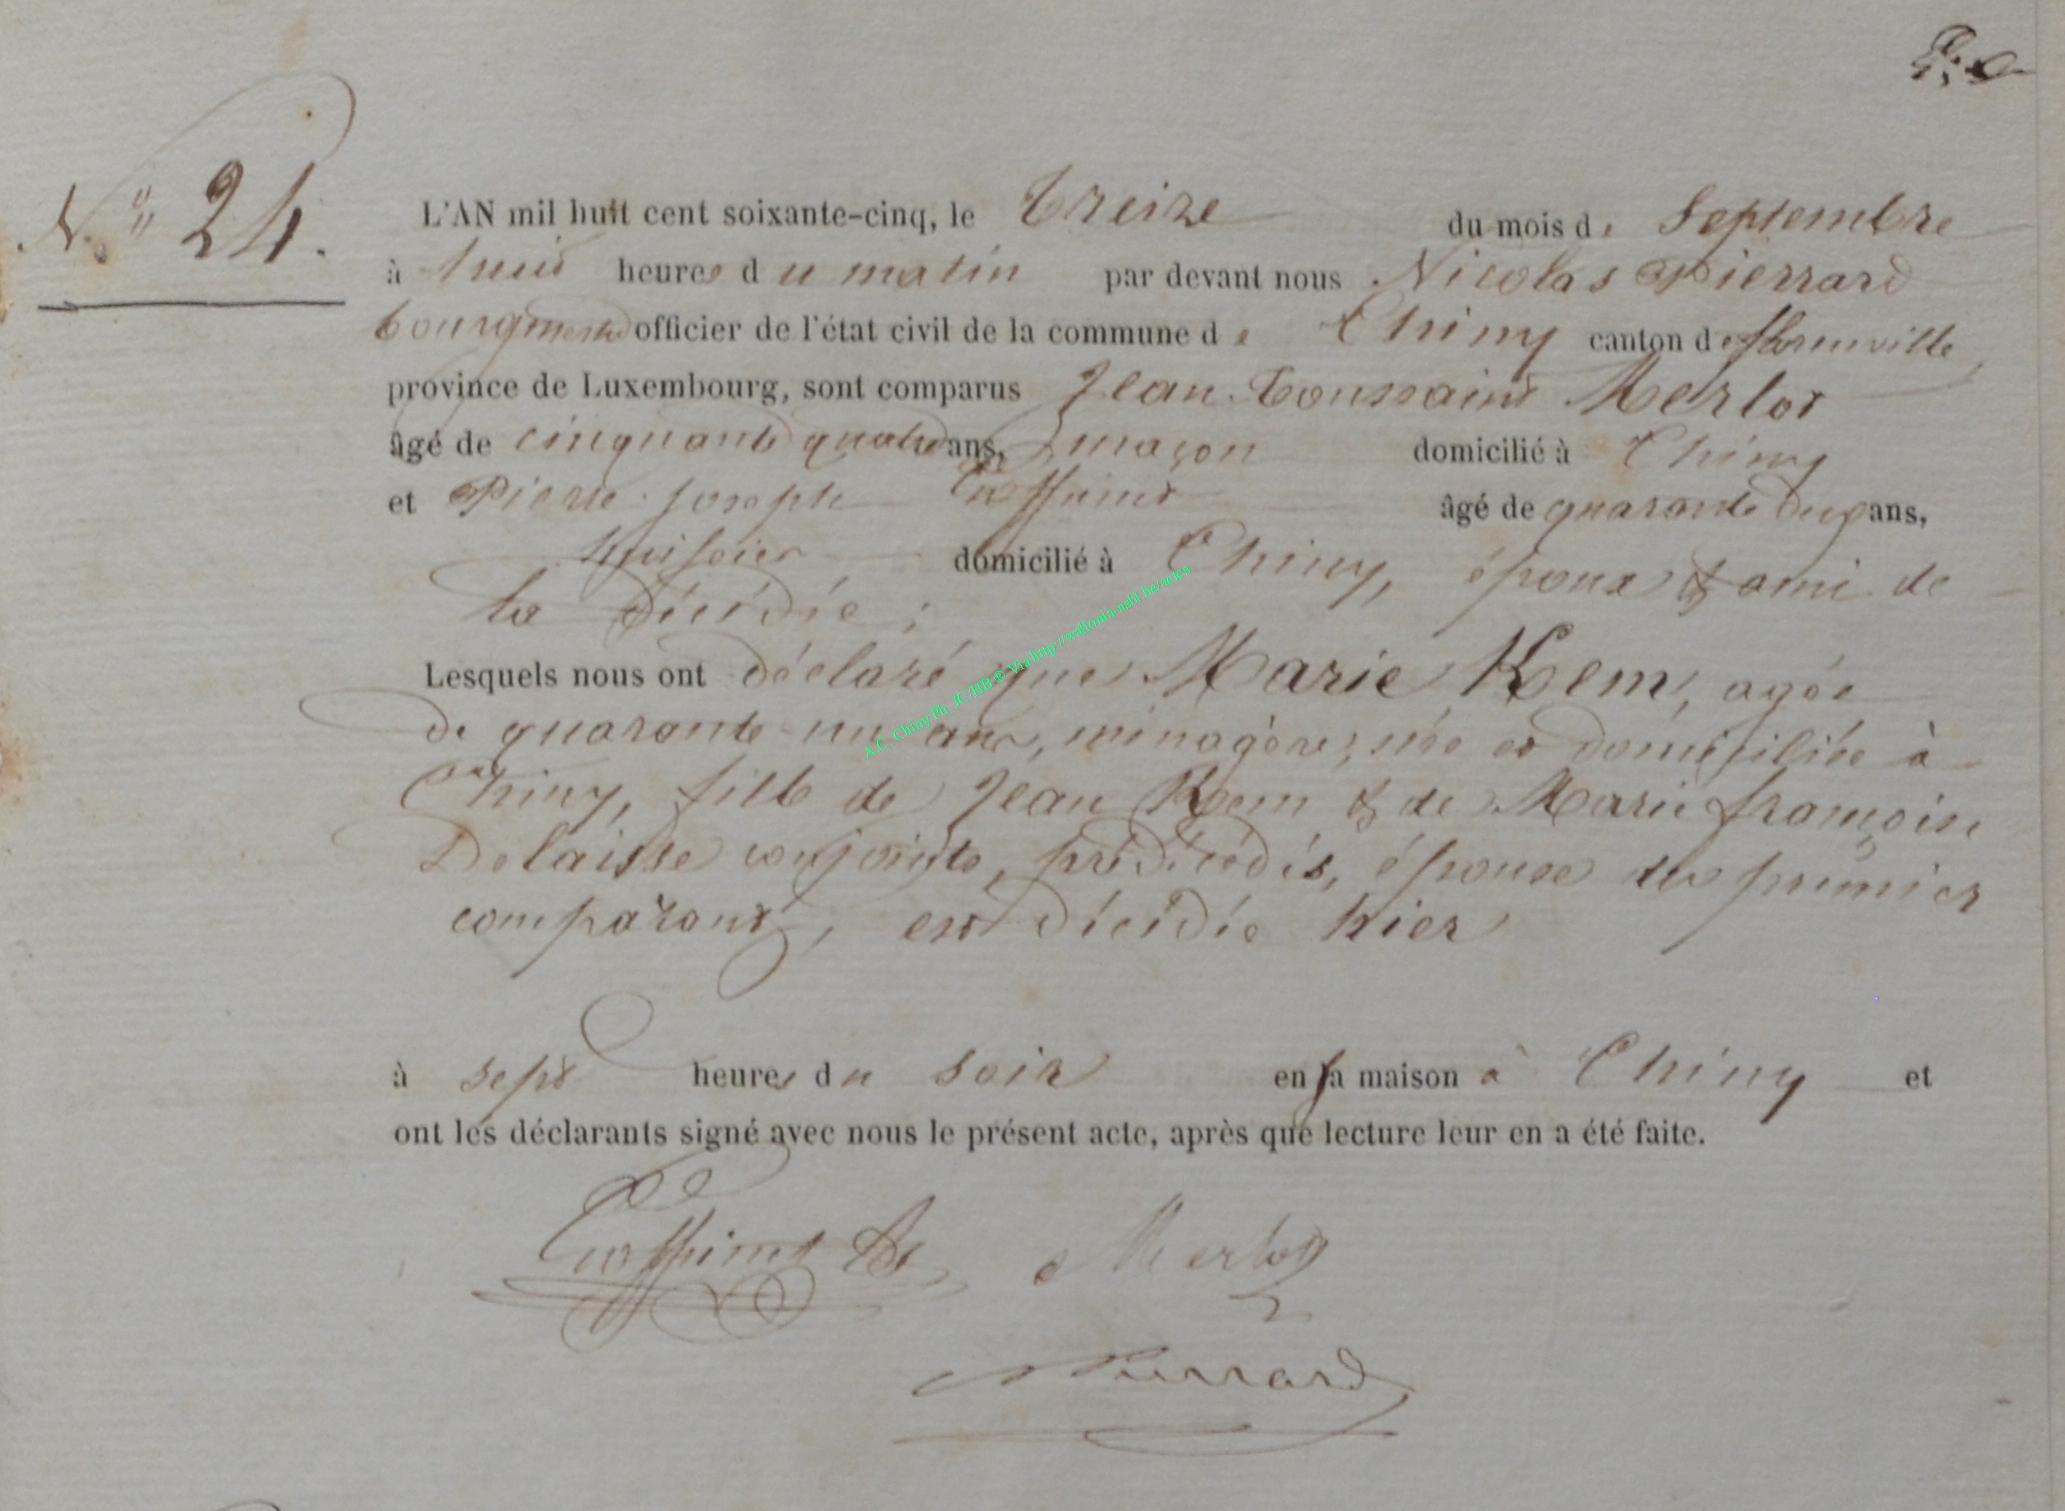 N.° 24.
L'AN mil huit cent soixante-cinq, le treize du mois de Septembre
à huit heures du matin par devant nous Nicolas Pierrard
bourgmestre officier de l'état civil de la commune de Chiny canton de florenville
province de Luxembourg, sont comparus Jean Toussaint Merlot
âgé de cinquante quatre ans, maçon domicilié à Chiny
et Pierre Joseph âgé de quarante deux ans,
huissier domicilié à Chiny, époux & ami de
la décédée;
Lesquels nous ont déclaré que Marie Kem, agée
de quarante un ans, ménagère, née et domiciliée à
Chiny, fille de Jean Kem & de Marie françoise
Delaisse conjoints, prédécédés, épouse du premier
comparant, est décédée hier
à sept heures du soir en sa maison à Chiny et
ont les déclarants signé avec nous le présent acte, après que lecture leur en a été faite.
Merlot
NPierrard